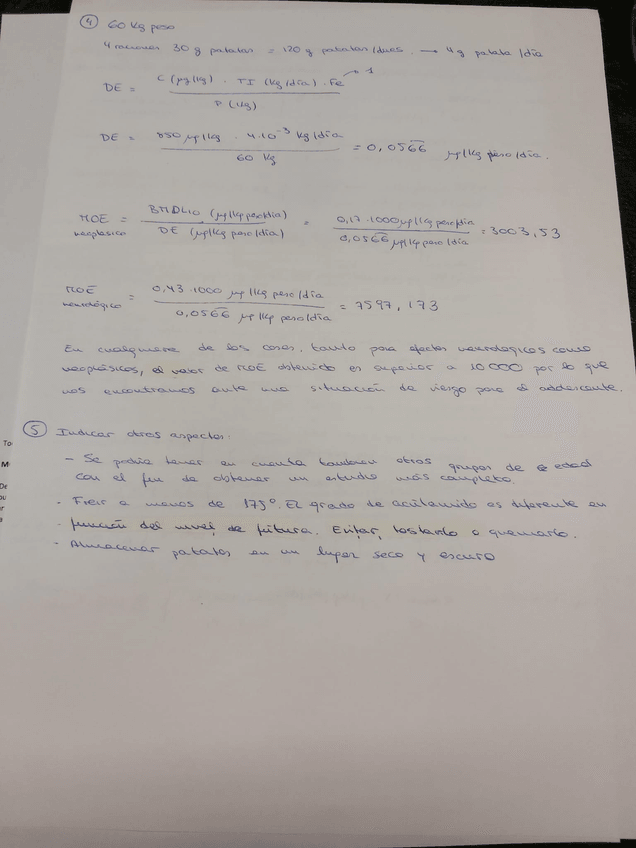 4 60 Kg peso
4 raciones 30 g patatas = 120 g patatas/mes. → 4 g patata/día
DE = C (µg/kg) · TI (kg/día) · Fe → 1
P (Kg)
DE = 850 µg/kg · 4·10⁻³ kg/día = 0,0566 µg/kg peso/día.
60 Kg
MOE neoplásico = BMDL10 (µg/kg peso/día) = 0,17·1000 µg/kg peso/día = 3003,53
DE (µg/kg peso/día) 0,0566 µg/kg peso/día
MOE neurológico = 0,43·1000 µg/kg peso/día = 7597,173
0,0566 µg/kg peso/día
En cualquiera de los casos, tanto para efectos neurológicos como
neoplásicos, el valor de MOE obtenido es superior a 10000 por lo que
nos encontramos ante una situación de riesgo para el adolescente.
5 Indicar otros aspectos:
- Se podría tener en cuenta también otros grupos de edad
con el fin de obtener un estudio más completo.
- Freir a menos de 175º. El grado de acrilamida es diferente en
- función del nivel de fritura. Evitar, tostarlo o quemarlo.
- Almacenar patatas en un lugar seco y oscuro
To
M
De